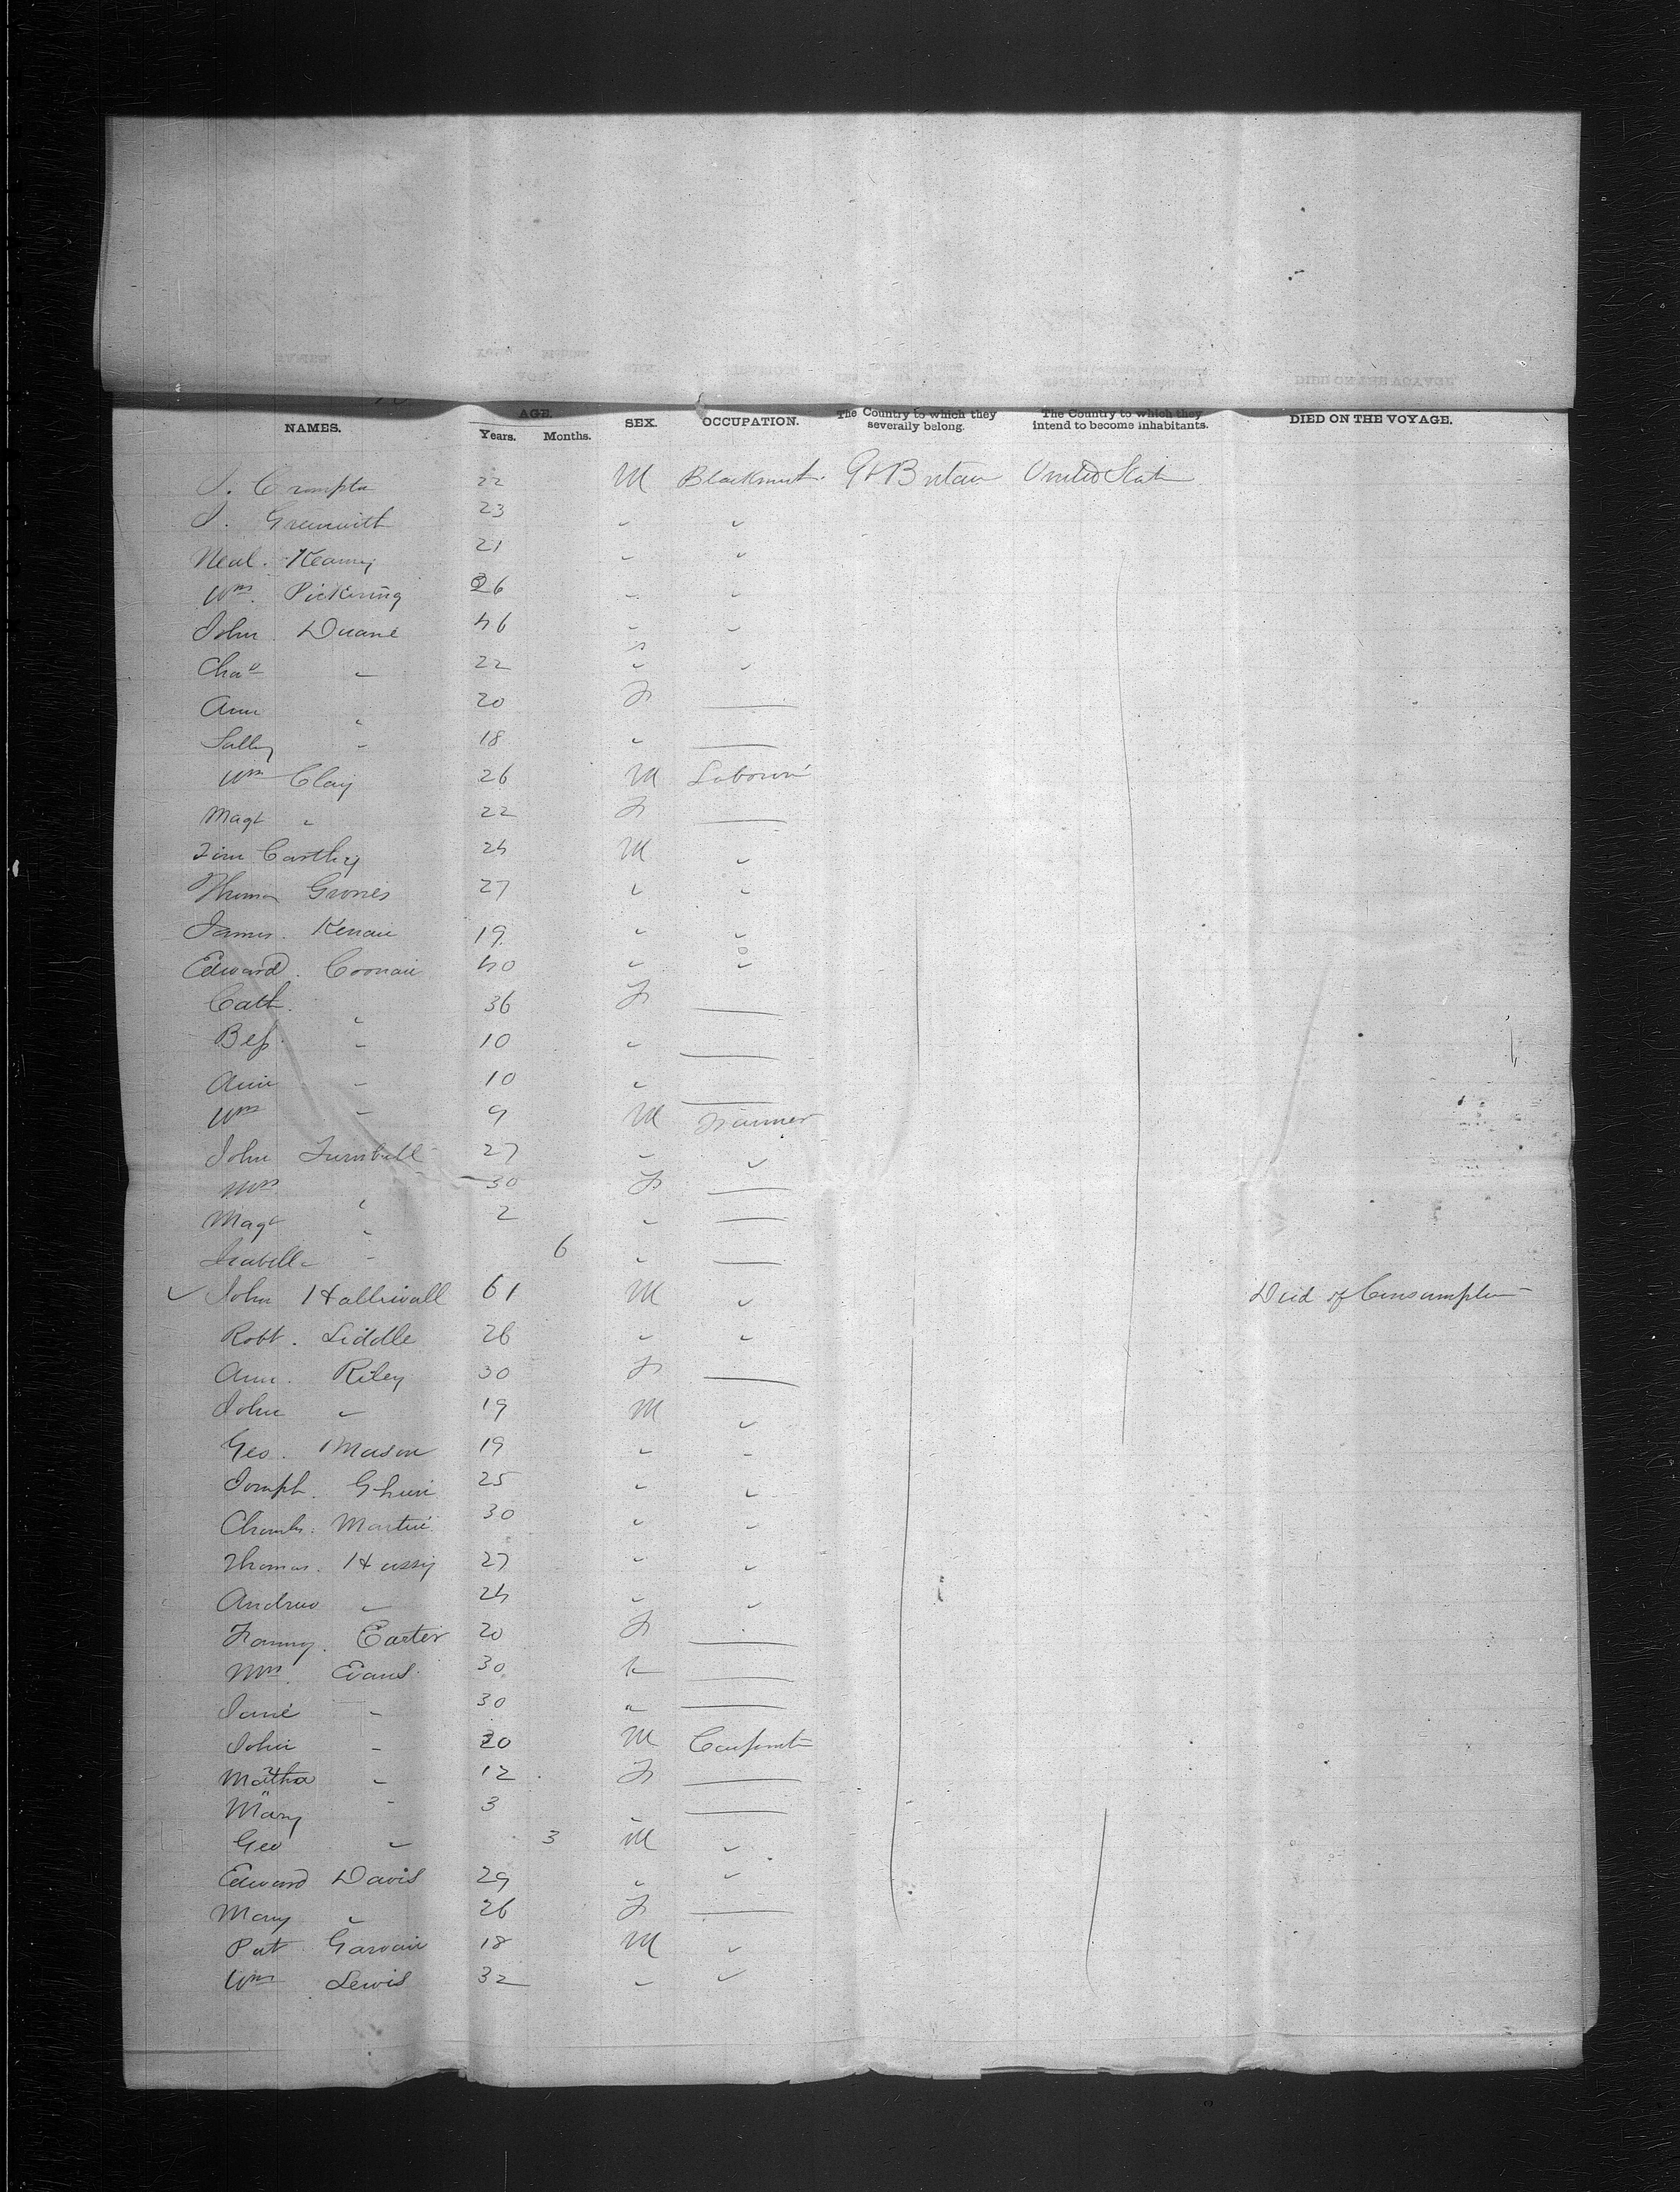 NAMES. AGE. Years. Months. SEX. OCCUPATION. The Country to which they severally belong. The Country to which they intend to become inhabitants. DIED ON THE VOYAGE.
J. Crompton 22 M Blacksmith Gt Britain United States
J. 23 " "
Neal. Kearney 21 " "
Wm. Pickering 26 " "
John Duane 46 " "
Chas " 22 " "
Ann " 20 F —
Sally " 18 " —
Wm Clay 26 M Labourer
Magt " 22 F —
Tim Carthy 24 M "
Thomas 27 " "
James. 19 " "
Edward. Coonan 40 " "
Cath. " 36 F —
Bess. " 10 " —
Ann " 10 " —
Wm " 9 M Farmer
John Turnbull 27 " "
Mrs " 30 F —
Magt " 2 " —
Isabella " 6 " —
John Halliwall 61 M " Died of Consumption
Robt. Liddle 26 " "
Ann. Riley 30 F —
John " 19 M "
Geo. Mason 19 " "
Joseph. 25 " "
Charles. Martin 30 " "
Thomas. Hussy 27 " "
Andrew " 24 " "
Fanny. Carter 20 F —
Mrs. Evans 30 " —
Jane " 30 " —
John " 20 M Carpenter
Martha " 12 F —
Mary " 3 " —
Geo " 3 M "
Edward Davis 29 " "
Mary " 26 F —
Pat Garvan 18 M "
Wm Lewis 32 " "